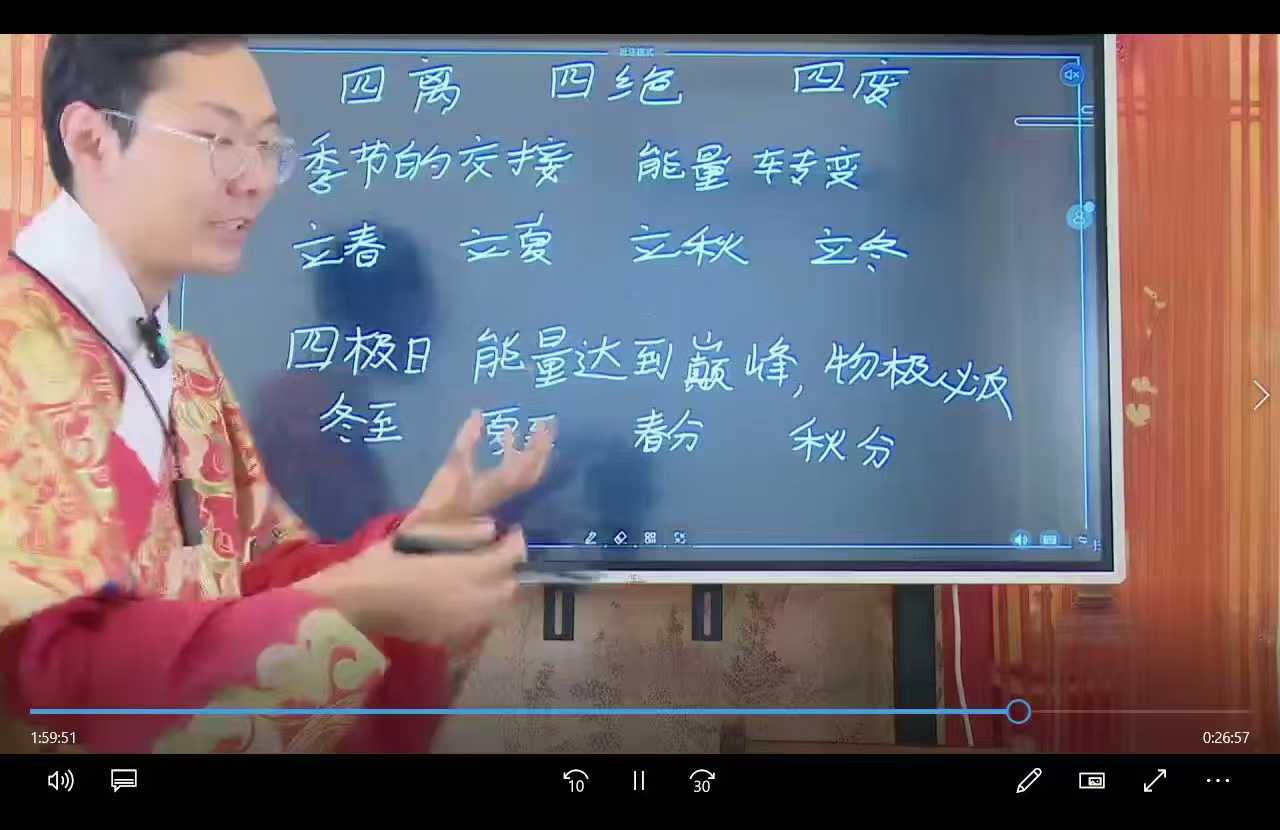 四离 四绝 四度
季节的交接 能量转变
立春 立夏 立秋 立冬
四极日 能量达到巅峰,物极必反
冬至 夏至 春分 秋分
1:59:51 0:26:57
10 30